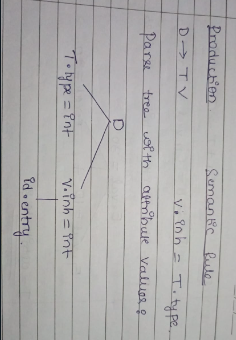 Production Semantic Rule
D → T V V.inh = T.type
Parse tree with attribute values:
D
T.type = int V.inh = int
id.entry.